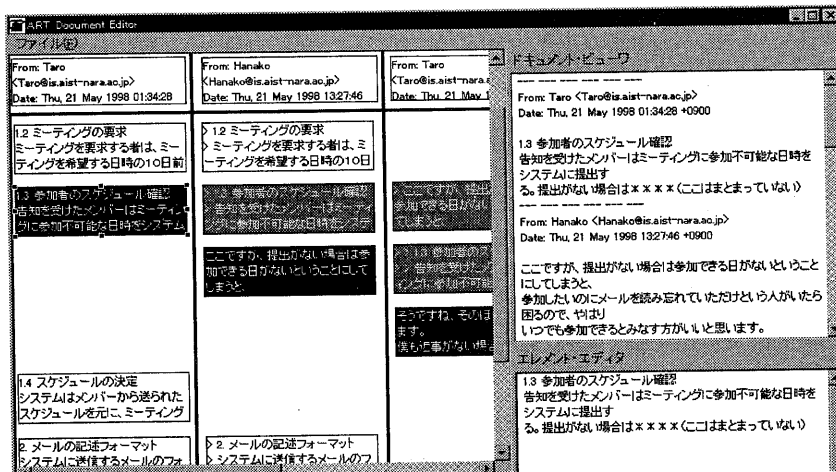 ART Document Editor
ファイル(F)
From: Taro
<Taro@is.aist-nara.ac.jp>
Date: Thu, 21 May 1998 01:34:28
1.2 ミーティングの要求
ミーティングを要求する者は、ミー
ティングを希望する日時の10日前
1.3 参加者のスケジュール確認
告知を受けたメンバーはミーティン
グに参加不可能な日時をシステム
1.4 スケジュールの決定
システムはメンバーから送られた
スケジュールを元に、ミーティング
2. メールの記述フォーマット
システムに送信するメールのフォ
From: Hanako
<Hanako@is.aist-nara.ac.jp>
Date: Thu, 21 May 1998 13:27:46
> 1.2 ミーティングの要求
> ミーティングを要求する者は、ミ
ーティングを希望する日時の10日
> 1.3 参加者のスケジュール確認
> 告知を受けたメンバーはミーテ
ィングに参加不可能な日時をシステ
ここですが、提出がない場合は参
加できる日がないということにして
しまうと、
> 2. メールの記述フォーマット
> システムに送信するメールのフ
From: Taro
<Taro@is.aist-nara.a
Date: Thu, 21 May 1
> ここですが、提出
参加できる日がない
てしまうと、
> > 1.3 参加者のス
> > 告知を受けたメ
ィングに参加不可能
そうですね、そのほ
ます。
僕も返事がない場合
ドキュメント・ビューワ
--- --- --- --- --- ---
From: Taro <Taro@is.aist-nara.ac.jp>
Date: Thu, 21 May 1998 01:34:28 +0900
1.3 参加者のスケジュール確認
告知を受けたメンバーはミーティングに参加不可能な日時を
システムに提出す
る。提出がない場合は××××(ここはまとまっていない)
--- --- --- --- --- ---
From: Hanako <Hanako@is.aist-nara.ac.jp>
Date: Thu, 21 May 1998 13:27:46 +0900
ここですが、提出がない場合は参加できる日がないということ
にしてしまうと、
参加したいのにメールを読み忘れていただけという人がいたら
困るので、やはり
いつでも参加できるとみなす方がいいと思います。
エレメント・エディタ
1.3 参加者のスケジュール確認
告知を受けたメンバーはミーティングに参加不可能な日時を
システムに提出す
る。提出がない場合は××××(ここはまとまっていない)